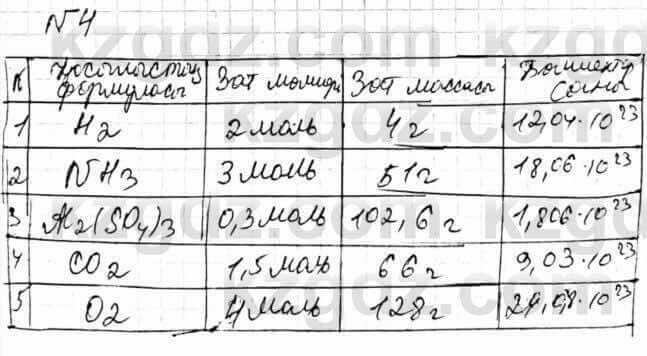 №4
№ Қосылыстың формуласы Зат мөлшері Зат массасы Бөлшектер саны
1 H2 2 моль 4 г 12,04·10^23
2 NH3 3 моль 51 г 18,06·10^23
3 Al2(SO4)3 0,3 моль 102,6 г 1,806·10^23
4 CO2 1,5 моль 66 г 9,03·10^23
5 O2 4 моль 128 г 24,08·10^23
kzgdz.com